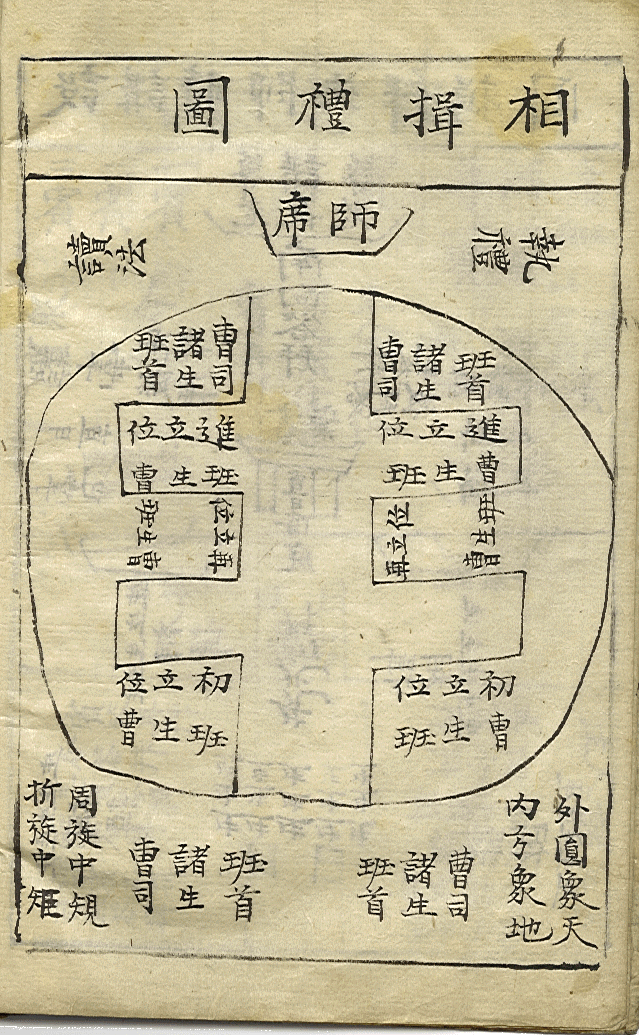 相揖禮圖
師席
執禮
讀法
班首
諸生
曹司
曹司
諸生
班首
進立位
曹生班
進立位
班生曹
再立位
再立位
班生曹
初立位
曹生班
初立位
班生曹
外圓象天
內方象地
曹司
諸生
班首
班首
諸生
曹司
周旋中規
折旋中矩